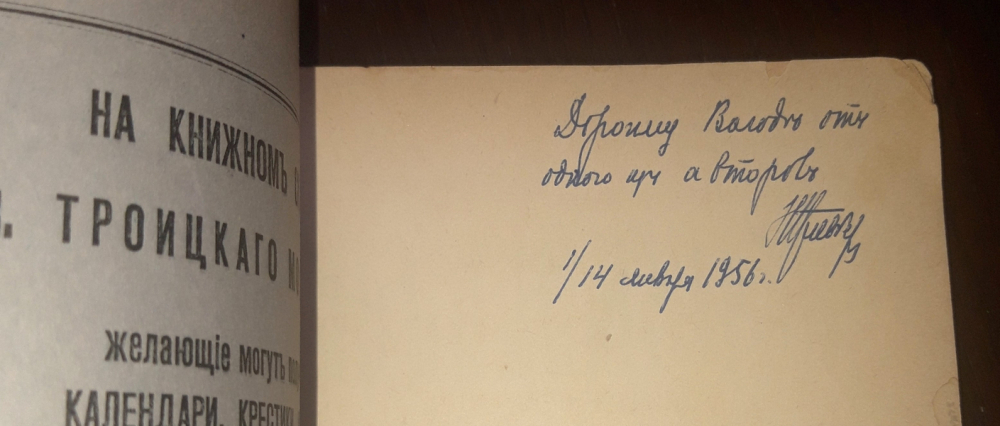 НА КНИЖНОМЪ
ТРОИЦКАГО
желающіе могутъ
КАЛЕНДАРИ, КРЕСТИКИ
Дорогому Володѣ отъ
одного изъ авторовъ
1/14 января 1956 г.